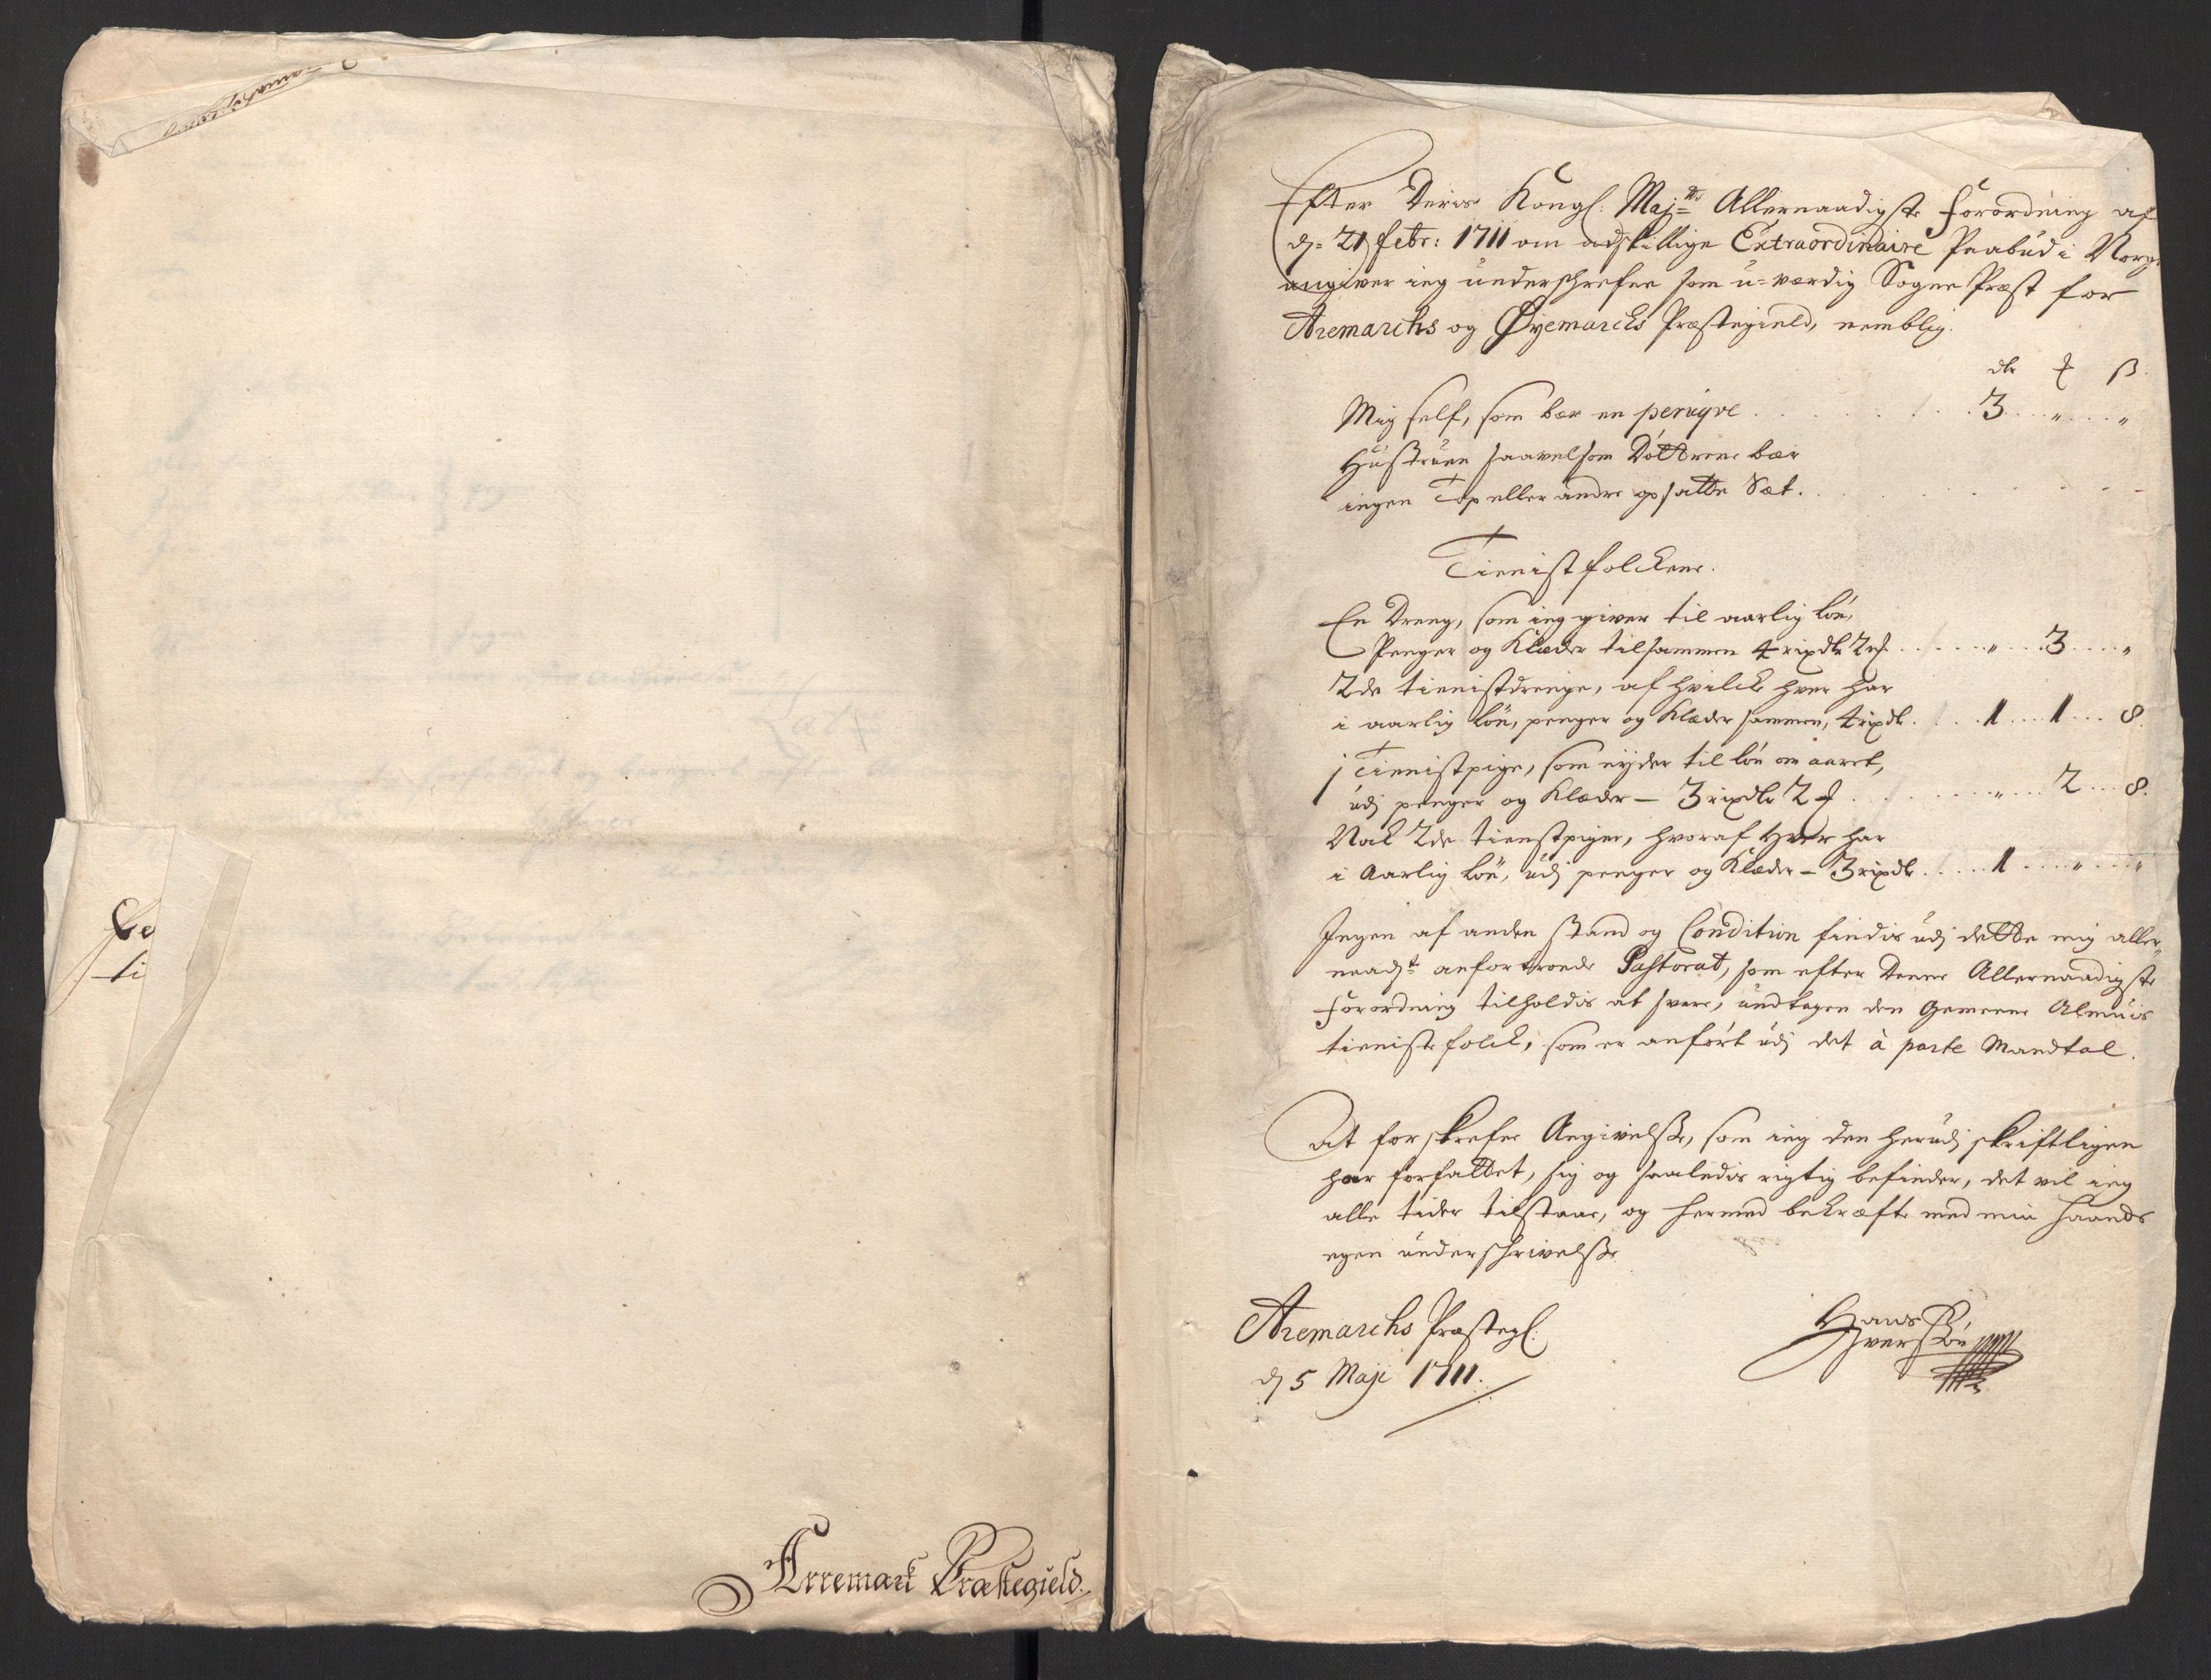 Arremark Præstegield.
Efter Deris Kongl: Maj:ts Allernaadigste Forordning af
d: 21 Febr: 1711 om adskillige Extraordinaire Paabud i Norge
angiver ieg underschrefne som u-værdig Sogne Præst for
Aremarchs og Øyemarchs Præstegield, nemblig.
dlr ß
Mig self, som bær en peruqve 3 „ „
Hustruen saavelsom Døttrene bær
ingen Top eller andre opsatte Sæt.
Tienistfolckene.
En Dreng, som ieg giver til aarlig løn,
Penger og Klæder tilsammen 4 rixdlr 2 „ 3 „
2de tienistdrenge, af hvilcke hver har
i aarlig løn, penger og Klæder sammen, 4 rixdlr. 1 1 8.
1 Tienistpige, som nyder til løn om aaret,
udj penger og Klæder – 3 rixdlr 2 „ 2 8.
Nok 2de tienstpiger, hvoraf hver har
i Aarlig løn, udj penger og Klæder – 3 rixdlr. 1 „ „
Ingen af anden stand og Condition findis udj dette mig aller-
naadt: anfortroede Pastorat, som efter denne Allernaadigste
Forordning tilholdis at svare, undtagen den Gemeene Almuis
tieniste folck, som er anført udj det à parte Mandtal.
At forskrefne Angivelße, som ieg den herudj skriftligen
har forfattet, sig og saaledis rigtig befinder, det vil ieg
alle tider tilstaae, og hermed bekræfte med min Haands
egen underschrivelße
Aremarchs Præstegl:
d 5 Maji 1711.
Hans